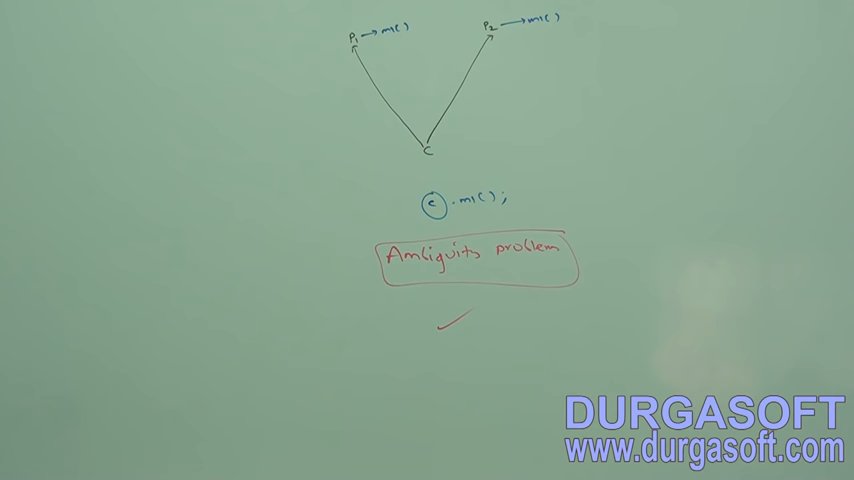 P1 → m1( ) P2 → m1( )
C
c . m1( ) ;
Ambiguity problem
DURGASOFT
www.durgasoft.com